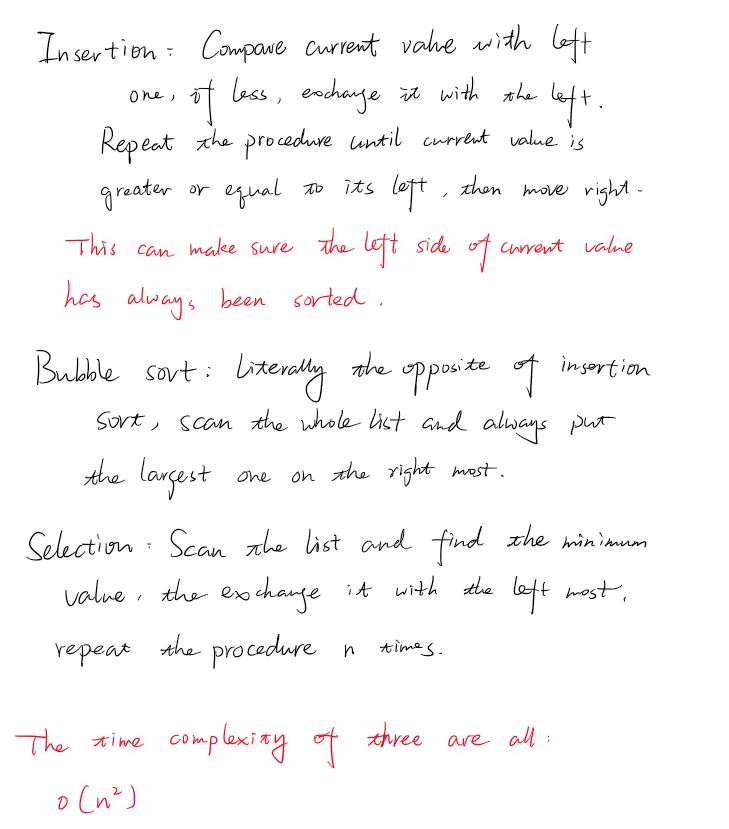 Insertion: Compare current value with left
one, if less, exchange it with the left.
Repeat the procedure until current value is
greater or equal to its left, then move right.
This can make sure the left side of current value
has always been sorted.
Bubble sort: Literally the opposite of insertion
sort, scan the whole list and always put
the largest one on the right most.
Selection: Scan the list and find the minimum
value, the exchange it with the left most,
repeat the procedure n times.
The time complexity of three are all:
O(n²)